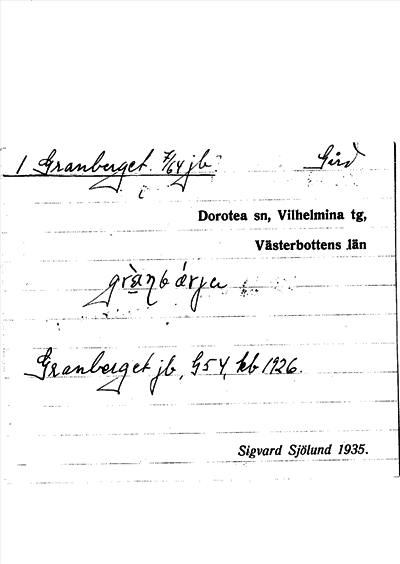 1 Granberget. 7/64 jb. Gård
i
Dorotea sn, Vilhelmina tg,
Västerbottens län
grànbárja
Granberget jb, G54, kb 1926.
Sigvard Sjölund 1935.